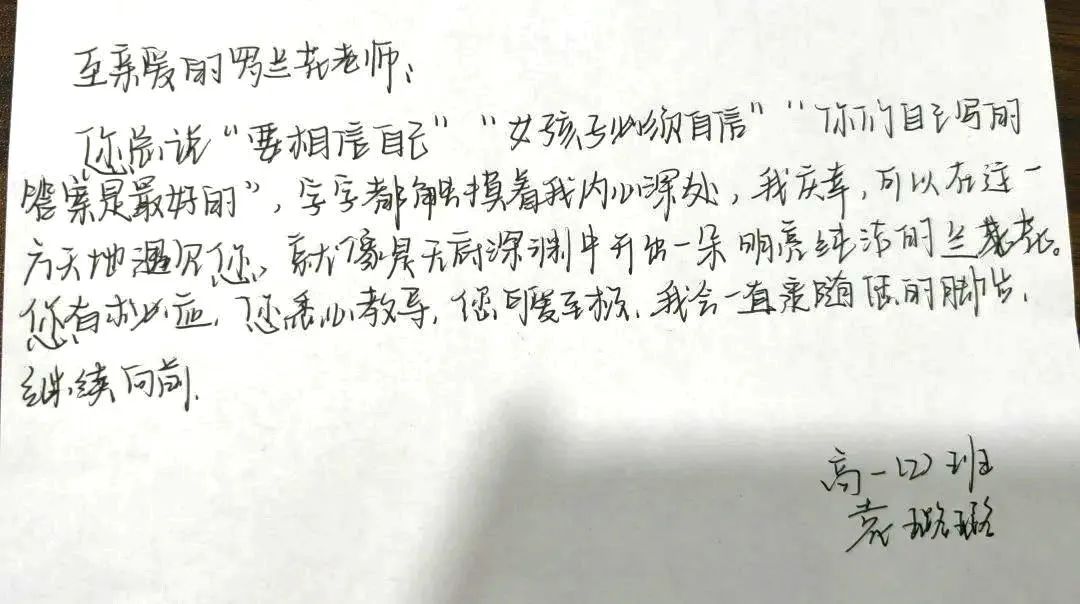 至亲爱的罗兰花老师：
您总说“要相信自己”“女孩子必须自信”“你们自己写的
答案是最好的”，字字都触摸着我内心深处，我庆幸，可以在这一
方天地遇见您、就像是无底深渊中开出一朵明亮纯洁的兰花。
您有求必应，您悉心教导，您可爱至极、我会一直乘随您的脚步，
继续向前.
高一(2)班
袁璐璐